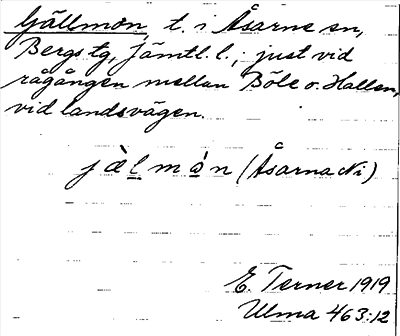 Gällmon, t. i Åsarne sn,
Bergs tg, Jämtl. l.; just vid
rågången mellan Böle o. Hallen,
vid landsvägen.
jàl̲mȧ̲n (Åsarna Ni)
E. Terner 1919
Ulma 463:12